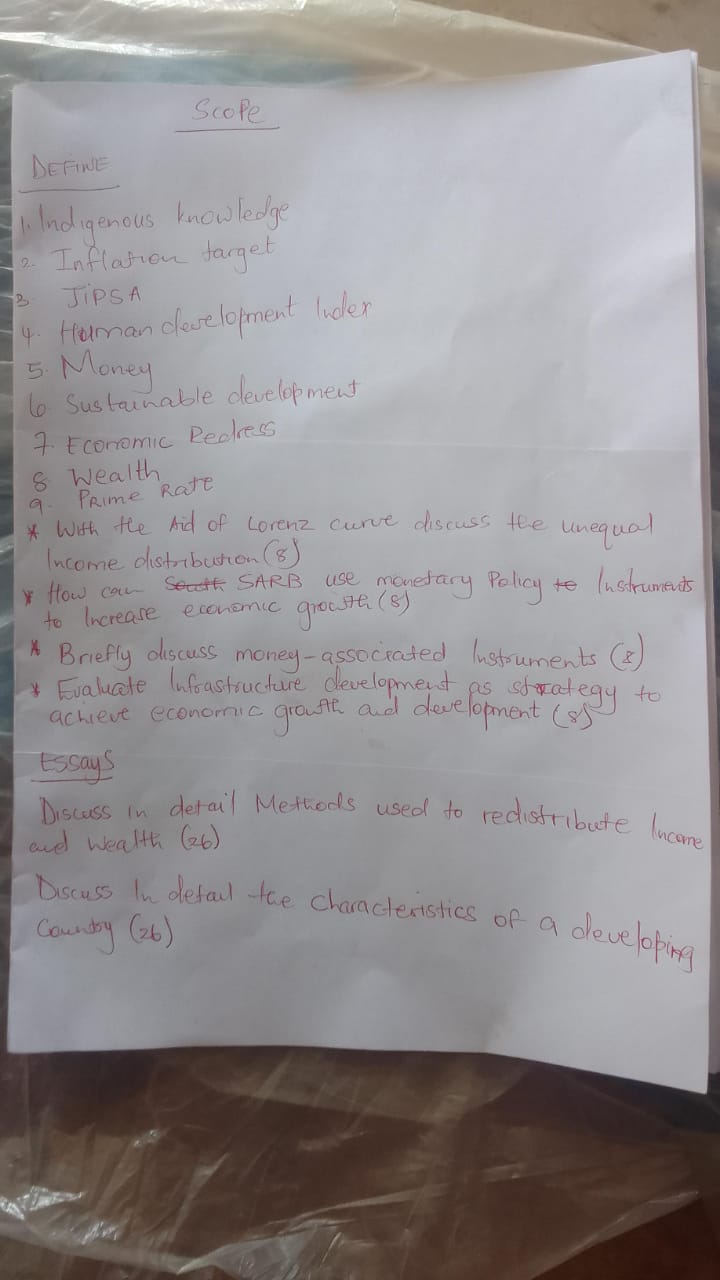 Scope
DEFINE
1. Indigenous knowledge
2. Inflation target
3. JiPSA
4. Human development Index
5. Money
6. Sustainable development
7. Economic Redress
8. Wealth
9. Prime Rate
* With the Aid of Lorenz curve discuss the unequal
Income distribution (8)
* How can South SARB use monetary Policy to Instruments
to Increase economic growth (8)
* Briefly discuss money-associated Instruments (8)
* Evaluate Infrastructure development as strategy to
achieve economic growth and development (8)
Essays
Discuss in detail Methods used to redistribute Income
and Wealth (26)
Discuss In detail the characteristics of a developing
Country (26)